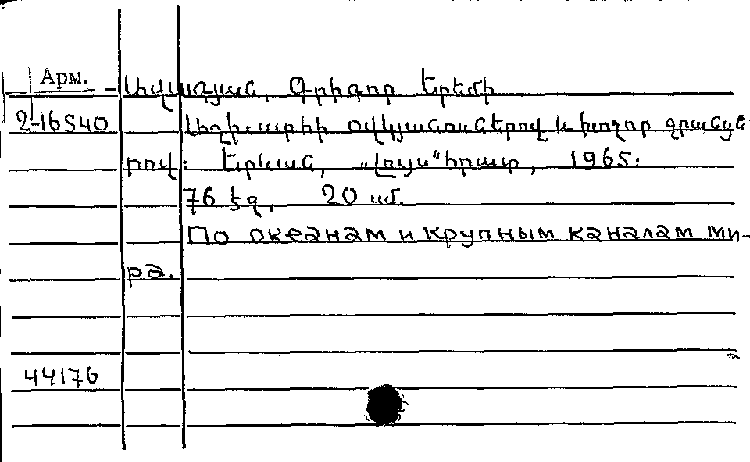 Арм.
Ավագյան, Գրիգոր Երեմի
2-16540
Աշխարհի օվկիանոսներով և խոշոր ջրանցք-
րով: Երևան, „Լույս" հրատ, 1965.
76 էջ, 20 սմ.
По океанам и крупным каналам ми-
ра.
44176